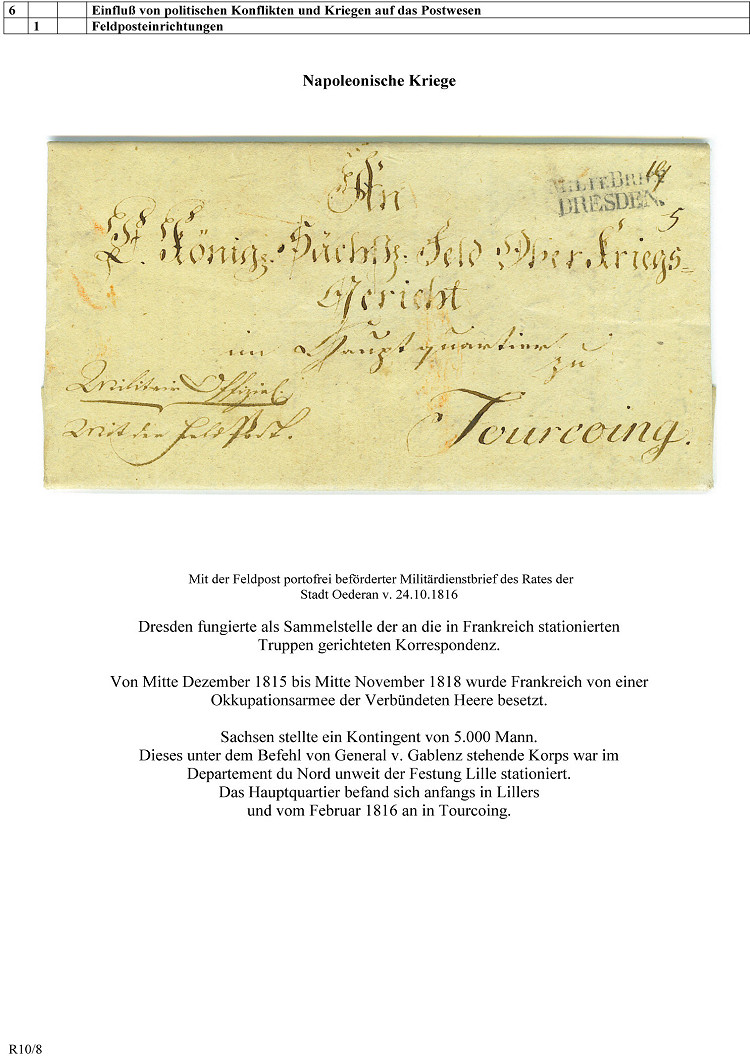 6 Einfluß von politischen Konflikten und Kriegen auf das Postwesen
1 Feldposteinrichtungen
Napoleonische Kriege
An
MILIT.BRIEF
DRESDEN.
5
E. Königz. Sächßz. Feld Ober Kriegs=
Gericht
im Hauptquartier
zu
Militair Offizial.
Tourcoing.
Mit der Feld Post.
Mit der Feldpost portofrei beförderter Militärdienstbrief des Rates der
Stadt Oederan v. 24.10.1816
Dresden fungierte als Sammelstelle der an die in Frankreich stationierten
Truppen gerichteten Korrespondenz.
Von Mitte Dezember 1815 bis Mitte November 1818 wurde Frankreich von einer
Okkupationsarmee der Verbündeten Heere besetzt.
Sachsen stellte ein Kontingent von 5.000 Mann.
Dieses unter dem Befehl von General v. Gablenz stehende Korps war im
Departement du Nord unweit der Festung Lille stationiert.
Das Hauptquartier befand sich anfangs in Lillers
und vom Februar 1816 an in Tourcoing.
R10/8